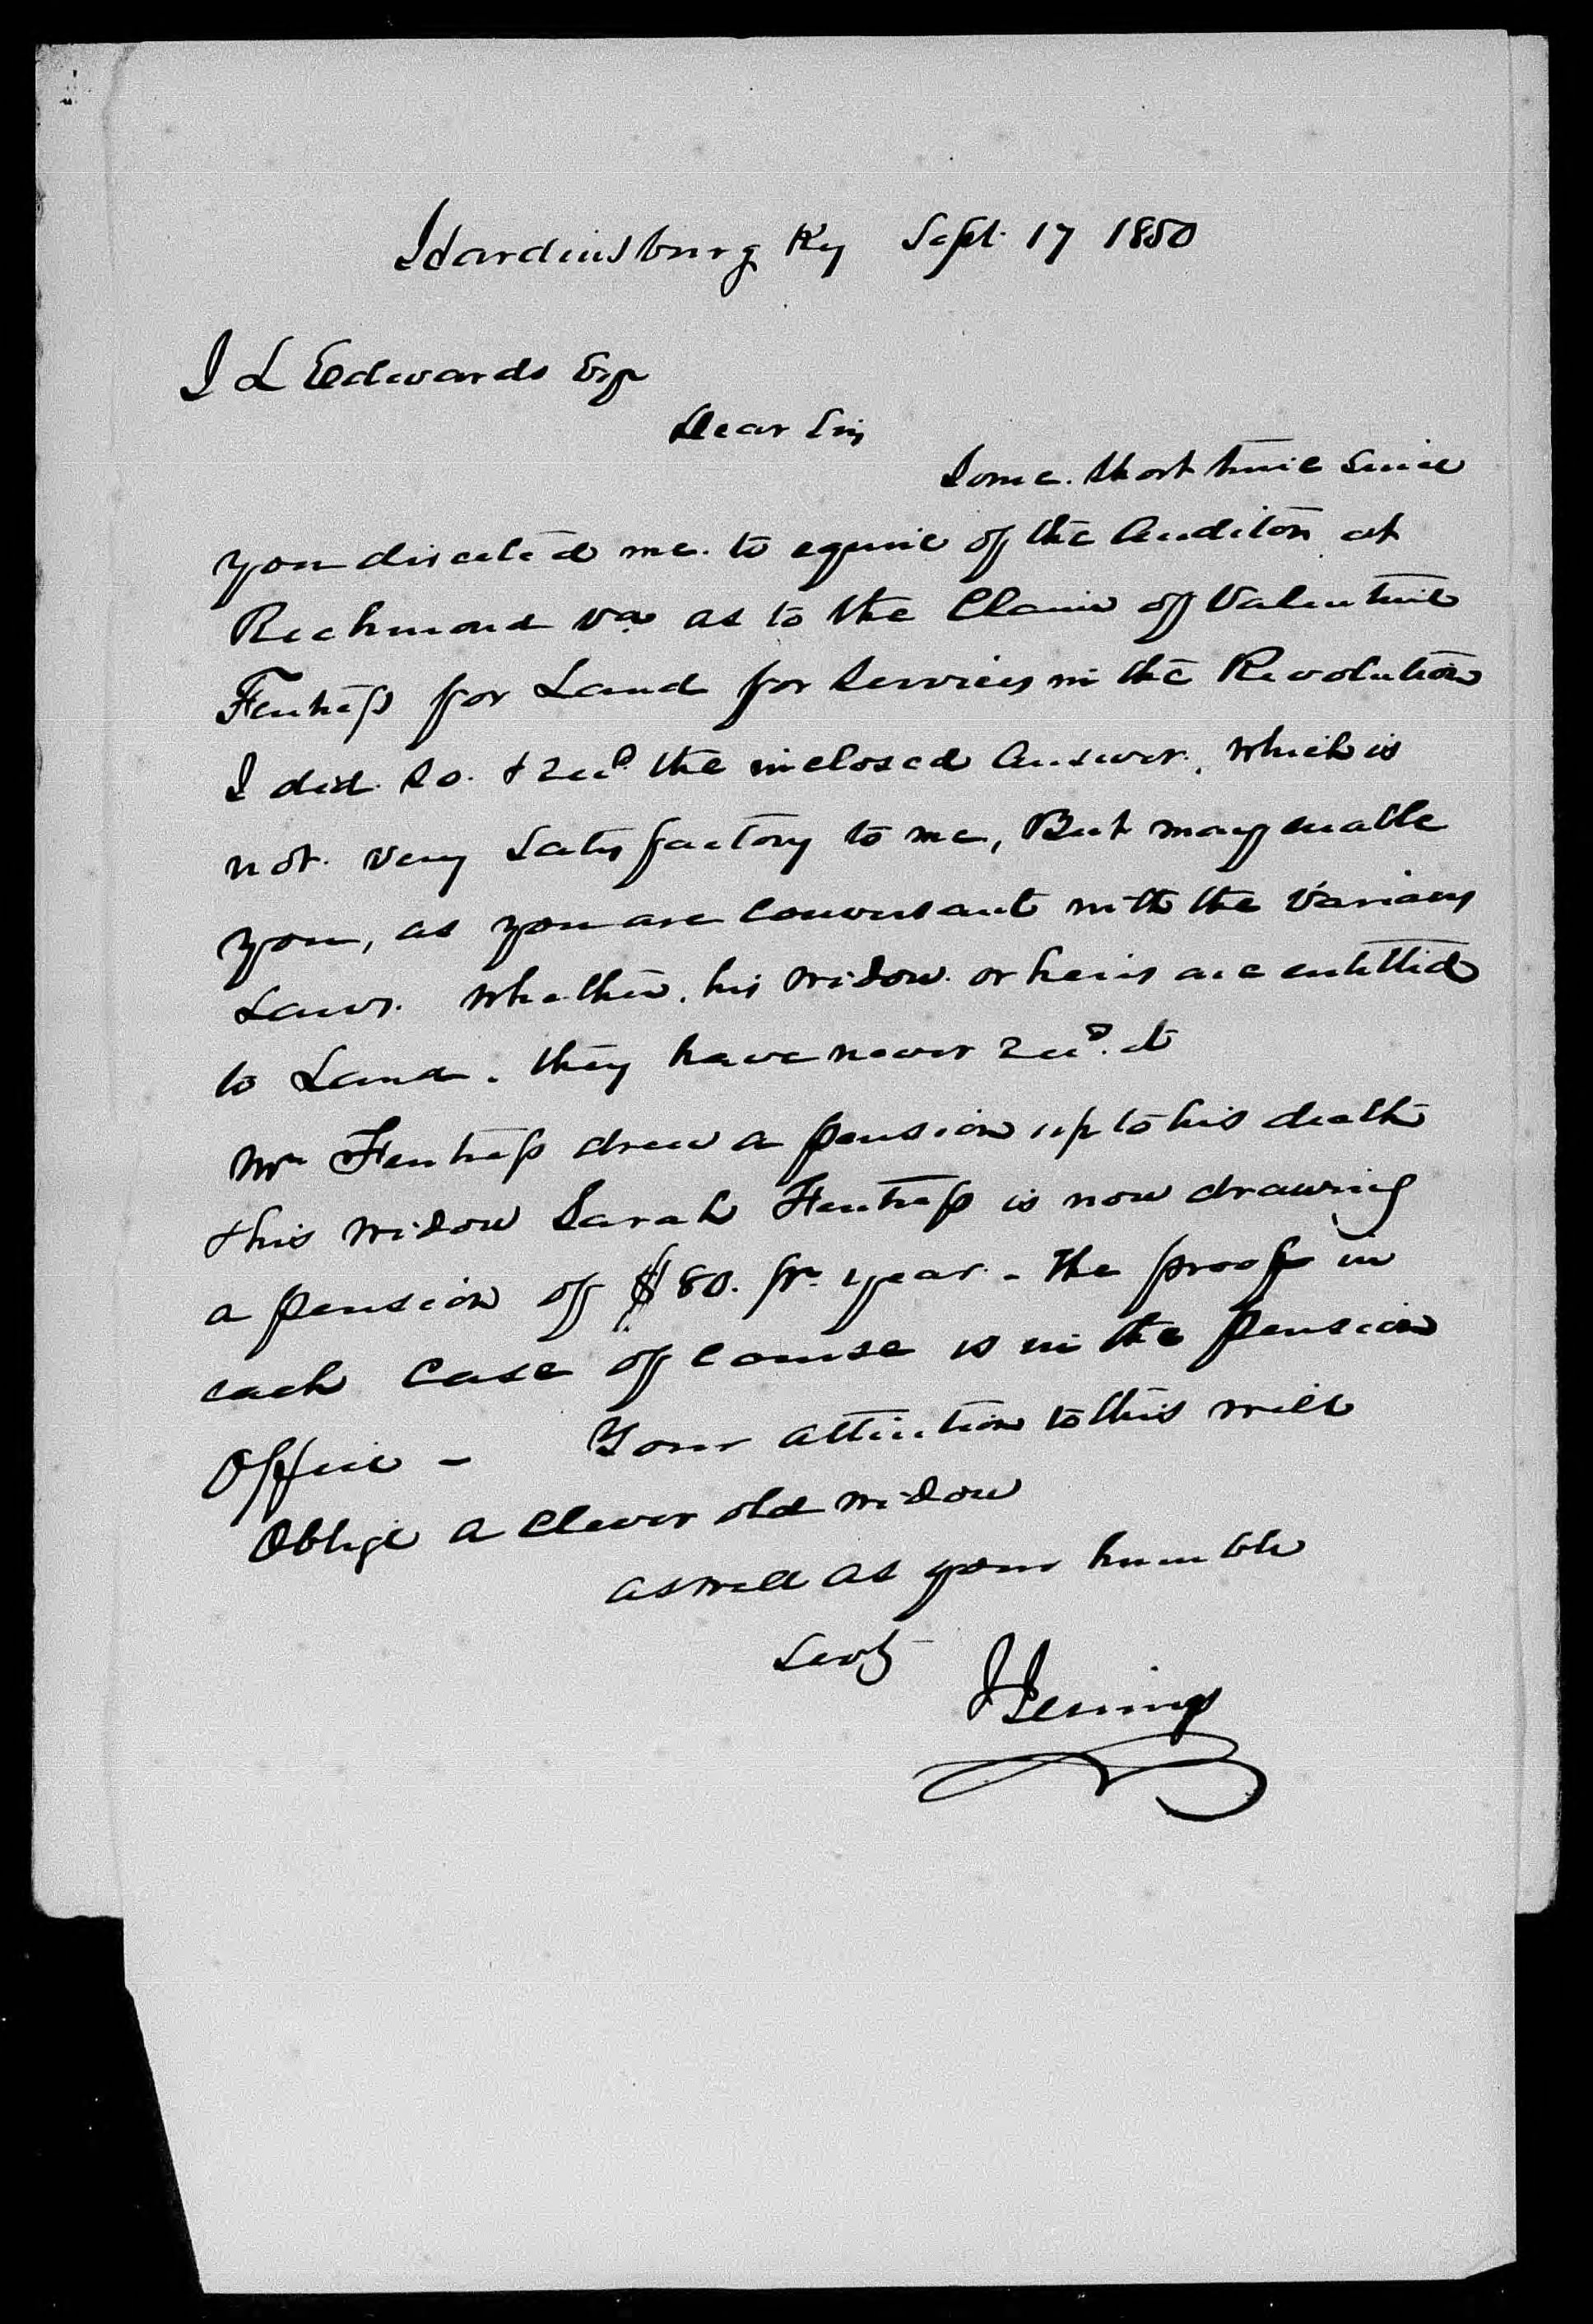 Hardinsburg Ky Sept. 17 1850
J L Edwards Esqr
Dear Sir,
Some short time since
you directed me to equire of the Auditor at
Richmond Va as to the Claim of Valentine
Fentress for Land for Services in the Revolution
I did so. & Recd. the inclosed Answer, which is
not very satisfactory to me, But may enable
you, as you are Conversant with the Various
Laws. whether, his widow or heirs are entittled
to Land. they have never Recd. it
Mr Fentress drew a pension up to his death
& his widow Sarah Fentress is now drawing
a pension of $80. pr. year - The proof in
each Case of course is in the Pension
Office - Your attention to this will
Oblige a Clever old widow
as well as your humble
Servt